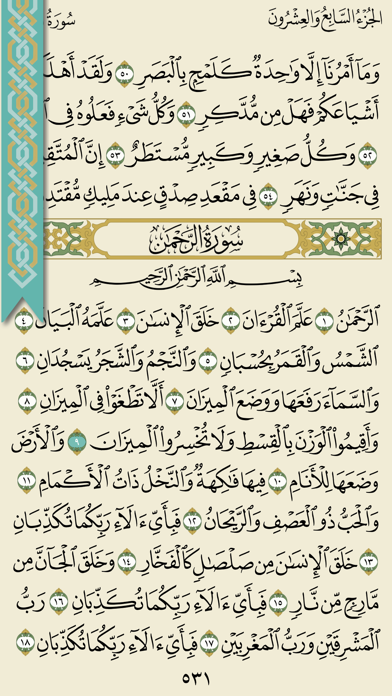 الجُزْءُ السَّابِعُ وَالعِشْرُونَ
سُورَةُ
وَمَآ أَمْرُنَآ إِلَّا وَٰحِدَةٌ كَلَمْحٍۭ بِٱلْبَصَرِ ٥٠ وَلَقَدْ
أَشْيَاعَكُمْ فَهَلْ مِن مُّدَّكِرٍ ٥١ وَكُلُّ شَىْءٍ فَعَلُوهُ فِى
٥٢ وَكُلُّ صَغِيرٍ وَكَبِيرٍ مُّسْتَطَرٌ ٥٣ إِنَّ
فِى جَنَّٰتٍ وَنَهَرٍ ٥٤ فِى مَقْعَدِ صِدْقٍ عِندَ مَلِيكٍ
سُورَةُ الرَّحْمٰن
بِسْمِ ٱللَّهِ ٱلرَّحْمَٰنِ ٱلرَّحِيمِ
ٱلرَّحْمَٰنُ ١ عَلَّمَ ٱلْقُرْءَانَ ٢ خَلَقَ ٱلْإِنسَٰنَ ٣ عَلَّمَهُ ٱلْبَيَانَ ٤
ٱلشَّمْسُ وَٱلْقَمَرُ بِحُسْبَانٍ ٥ وَٱلنَّجْمُ وَٱلشَّجَرُ يَسْجُدَانِ ٦
وَٱلسَّمَآءَ رَفَعَهَا وَوَضَعَ ٱلْمِيزَانَ ٧ أَلَّا تَطْغَوْا۟ فِى ٱلْمِيزَانِ ٨
وَأَقِيمُوا۟ ٱلْوَزْنَ بِٱلْقِسْطِ وَلَا تُخْسِرُوا۟ ٱلْمِيزَانَ ٩ وَٱلْأَرْضَ
وَضَعَهَا لِلْأَنَامِ ١٠ فِيهَا فَٰكِهَةٌ وَٱلنَّخْلُ ذَاتُ ٱلْأَكْمَامِ ١١
وَٱلْحَبُّ ذُو ٱلْعَصْفِ وَٱلرَّيْحَانُ ١٢ فَبِأَىِّ ءَالَآءِ رَبِّكُمَا تُكَذِّبَانِ
١٣ خَلَقَ ٱلْإِنسَٰنَ مِن صَلْصَٰلٍ كَٱلْفَخَّارِ ١٤ وَخَلَقَ ٱلْجَآنَّ مِن
مَّارِجٍ مِّن نَّارٍ ١٥ فَبِأَىِّ ءَالَآءِ رَبِّكُمَا تُكَذِّبَانِ ١٦ رَبُّ
ٱلْمَشْرِقَيْنِ وَرَبُّ ٱلْمَغْرِبَيْنِ ١٧ فَبِأَىِّ ءَالَآءِ رَبِّكُمَا تُكَذِّبَانِ ١٨
٥٣١